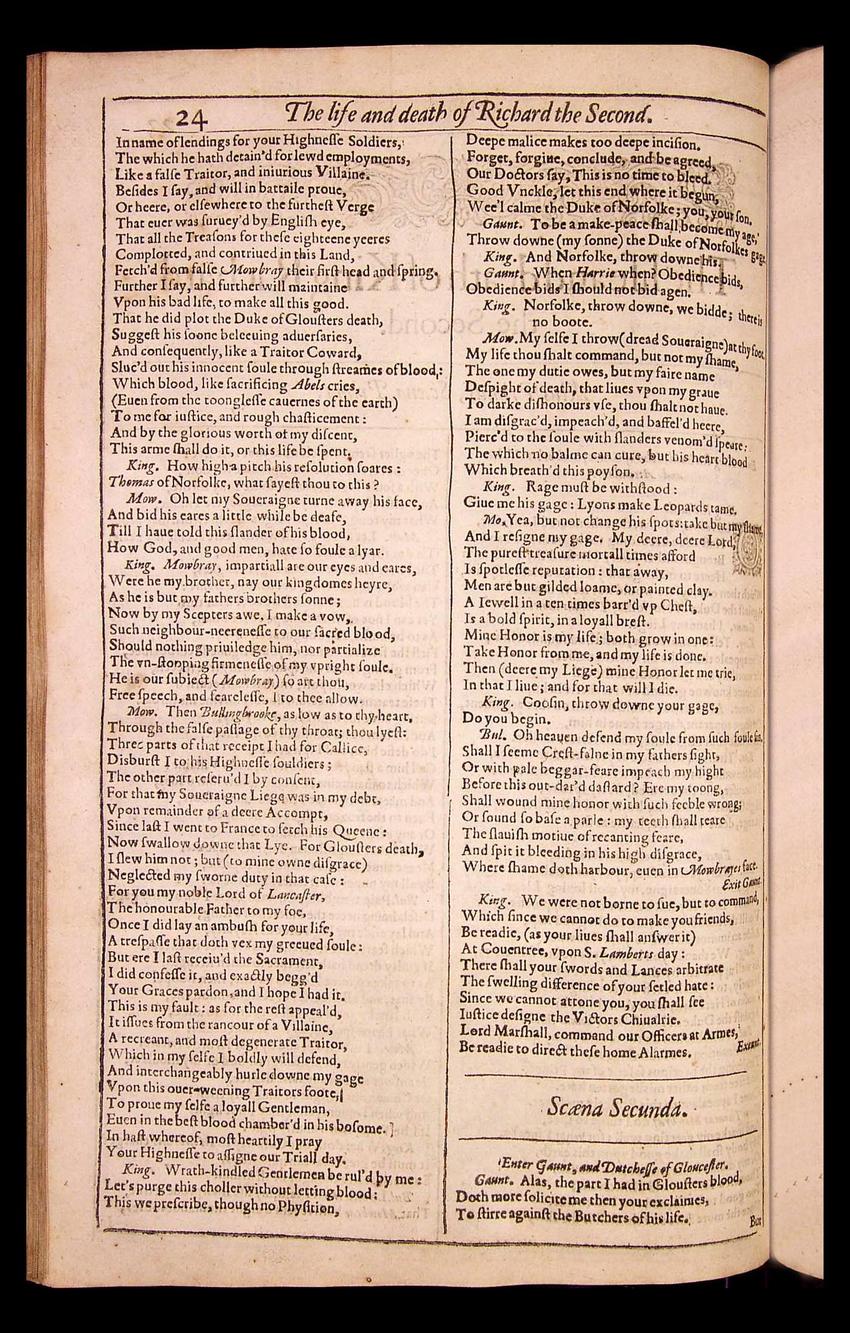 24
The life and death of Richard the Second.
In name of lendings for your Highneſſe Soldiers,
The which he hath detain'd for lewd employments,
Like a falſe Traitor, and iniurious Villaine.
Beſides I ſay, and will in battaile proue,
Or heere, or elſewhere to the furtheſt Verge
That euer was ſuruey'd by Engliſh eye,
That all the Treaſons for theſe eighteene yeeres
Complotted, and contriued in this Land,
Fetch'd from falſe Mowbray their firſt head and ſpring.
Further I ſay, and further will maintaine
Vpon his bad life, to make all this good.
That he did plot the Duke of Glouſters death,
Suggeſt his ſoone beleeuing aduerſaries,
And conſequently, like a Traitor Coward,
Sluc'd out his innocent ſoule through ſtreames of blood:
Which blood, like ſacrificing Abels cries,
(Euen from the toongleſſe cauernes of the earth)
To me for iuſtice, and rough chaſticement:
And by the glorious worth of my diſcent,
This arme ſhall do it, or this life be ſpent.
King. How high a pitch his reſolution ſoares:
Thomas of Norfolke, what ſayeſt thou to this?
Mow. Oh let my Soueraigne turne away his face,
And bid his eares a little while be deafe,
Till I haue told this ſlander of his blood,
How God, and good men, hate ſo foule a lyar.
King. Mowbray, impartiall are our eyes and eares,
Were he my brother, nay our kingdomes heyre,
As he is but my fathers brothers ſonne;
Now by my Scepters awe, I make a vow,
Such neighbour-neereneſſe to our ſacred blood,
Should nothing priuiledge him, nor partialize
The vn-ſtooping firmeneſſe of my vpright ſoule.
He is our ſubiect (Mowbray) ſo art thou,
Free ſpeech, and feareleſſe, I to thee allow.
Mow. Then Bullingbrooke, as low as to thy heart,
Through the falſe paſſage of thy throat; thou lyeſt:
Three parts of that receipt I had for Callice,
Disburſt I to his Highneſſe ſouldiers;
The other part reſeru'd I by conſent,
For that my Soueraigne Liege was in my debt,
Vpon remainder of a deere Accompt,
Since laſt I went to France to fetch his Queene:
Now ſwallow downe that Lye. For Glouſters death,
I ſlew him not; but (to mine owne diſgrace)
Neglected my ſworne duty in that caſe:
For you my noble Lord of Lancaſter,
The honourable Father to my foe,
Once I did lay an ambuſh for your life,
A treſpaſſe that doth vex my greeued ſoule:
But ere I laſt receiu'd the Sacrament,
I did confeſſe it, and exactly begg'd
Your Graces pardon, and I hope I had it.
This is my fault: as for the reſt appeal'd,
It iſſues from the rancour of a Villaine,
A recreant, and moſt degenerate Traitor,
Which in my ſelfe I boldly will defend,
And interchangeably hurle downe my gage
Vpon this ouer-weening Traitors foote,
To proue my ſelfe a loyall Gentleman,
Euen in the beſt blood chamber'd in his boſome.
In haſt whereof, moſt heartily I pray
Your Highneſſe to aſſigne our Triall day.
King. Wrath-kindled Gentlemen be rul'd by me:
Let's purge this choller without letting blood:
This we preſcribe, though no Phyſition,
Deepe malice makes too deepe inciſion.
Forget, forgiue, conclude, and be agreed,
Our Doctors ſay, This is no time to bleed.
Good Vnckle, let this end where it begun,
Wee'l calme the Duke of Norfolke; you, your ſon.
Gaunt. To be a make-peace ſhall become my age,
Throw downe (my ſonne) the Duke of Norfolkes gage.
King. And Norfolke, throw downe his.
Gaunt. When Harrie when? Obedience bids,
Obedience bids I ſhould not bid agen.
King. Norfolke, throw downe, we bidde; there is
no boote.
Mow. My ſelfe I throw (dread Soueraigne) at thy foot.
My life thou ſhalt command, but not my ſhame,
The one my dutie owes, but my faire name
Deſpight of death, that liues vpon my graue
To darke diſhonours vſe, thou ſhalt not haue.
I am diſgrac'd, impeach'd, and baffel'd heere,
Pierc'd to the ſoule with ſlanders venom'd ſpeare:
The which no balme can cure, but his heart blood
Which breath'd this poyſon.
King. Rage muſt be withſtood:
Giue me his gage: Lyons make Leopards tame.
Mo. Yea, but not change his ſpots: take but my ſhame,
And I reſigne my gage. My deere, deere Lord,
The pureſt treaſure mortall times afford
Is ſpotleſſe reputation: that away,
Men are but gilded loame, or painted clay.
A Iewell in a ten times barr'd vp Cheſt,
Is a bold ſpirit, in a loyall breſt.
Mine Honor is my life; both grow in one:
Take Honor from me, and my life is done.
Then (deere my Liege) mine Honor let me trie,
In that I liue; and for that will I die.
King. Cooſin, throw downe your gage,
Do you begin.
Bul. Oh heauen defend my ſoule from ſuch foule ſin.
Shall I ſeeme Creſt-falne in my fathers ſight,
Or with pale beggar-feare impeach my hight
Before this out-dar'd daſtard? Ere my toong,
Shall wound mine honor with ſuch feeble wrong;
Or ſound ſo baſe a parle: my teeth ſhall teare
The ſlauiſh motiue of recanting feare,
And ſpit it bleeding in his high diſgrace,
Where ſhame doth harbour, euen in Mowbrayes face.
Exit Gaunt.
King. We were not borne to ſue, but to command,
Which ſince we cannot do to make you friends,
Be readie, (as your liues ſhall anſwer it)
At Couentree, vpon S. Lamberts day:
There ſhall your ſwords and Lances arbitrate
The ſwelling difference of your ſetled hate:
Since we cannot attone you, you ſhall ſee
Iuſtice deſigne the Victors Chiualrie.
Lord Marſhall, command our Officers at Armes,
Be readie to direct theſe home Alarmes.
Exeunt.
Scæna Secunda.
Enter Gaunt, and Dutcheſſe of Glouceſter.
Gaunt. Alas, the part I had in Glouſters blood,
Doth more ſolicite me then your exclaimes,
To ſtirre againſt the Butchers of his life.
But